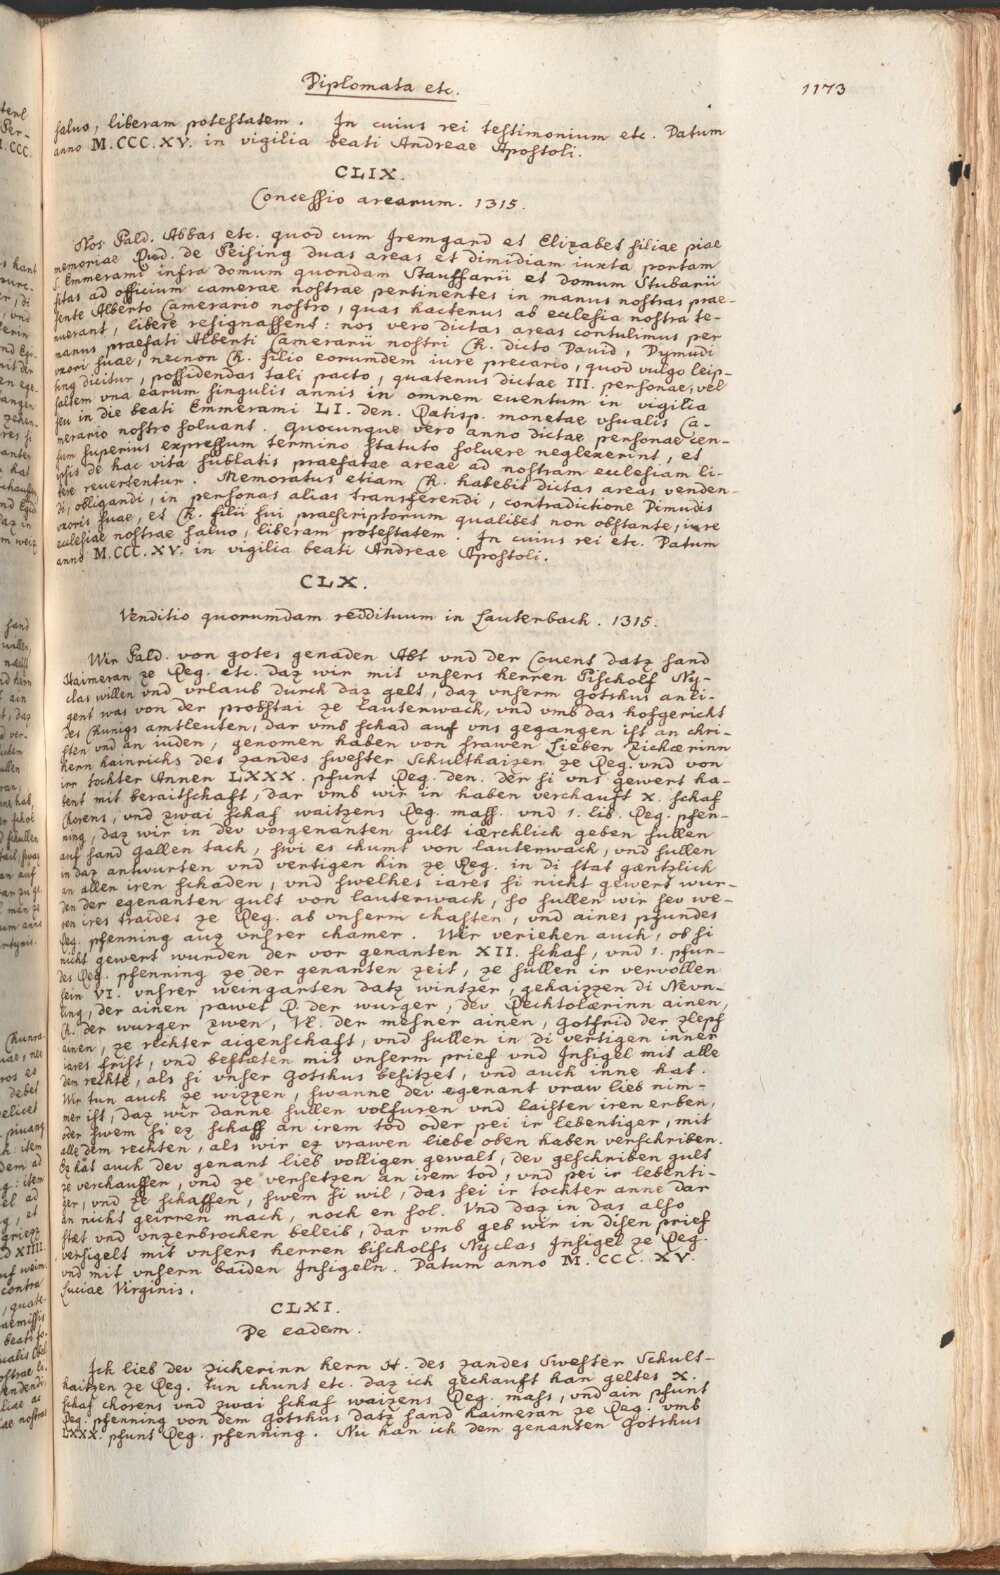 Diplomata etc. 1173
salvo, liberam potestatem. In cuius rei testimonium etc. Datum
anno M.CCC.XV. in vigilia beati Andreae Apostoli.
CLIX.
Concessio arearum. 1315.
Nos Bald. Abbas etc. quod cum Iremgard et Elizabet filiae piae
memoriae Rud. de Peising duas areas et dimidiam iuxta portam
S. Emmerami infra domum quondam Stauffarii et domum Stubarii
sitas ad officium camerae nostrae pertinentes in manus nostras prae-
sente Alberto Camerario nostro, quas hactenus ab ecclesia nostra te-
nuerant, libere resignassent: nos vero dictas areas contulimus per
manus praefati Alberti Camerarii nostri Ch. dicto David, Dymudi
uxori suae, necnon Ch. filio eorumdem iure precario, quod vulgo leip-
ting dicitur, possidendas tali pacto, quatenus dictae III. personae, vel
saltem una earum singulis annis in omnem eventum in vigilia
seu in die beati Emmerami LI. den. Ratisp. monetae usualis Ca-
merario nostro solvant. Quocunque vero anno dictae personae cen-
sum superius expressum termino statuto solvere neglexerint, et
ipsis de hac vita sublatis praefatae areae ad nostram ecclesiam li-
bere revertentur. Memoratus etiam Ch. habebit dictas areas venden-
di, obligandi, in personas alias transferendi, contradictione Dimudis
uxoris suae, et Ch. filii sui praescriptorum qualibet non obstante, iure
ecclesiae nostrae salvo, liberam potestatem. In cuius rei etc. Datum
anno M.CCC.XV. in vigilia beati Andreae Apostoli.
CLX.
Venditio quorumdam reddituum in Lauterbach. 1315.
Wir Bald. von gotes genaden Abt vnd der Covent datz sand
Haimeran ze Reg. etc. daz wir mit vnsers herren Pischolf Ny-
clas willen vnd vrlaub durch daz gelt, daz vnserm gotshus anli-
gent was von der probstai ze Lauterwach, vnd vmb das hofgericht
des Chunigs amtleuten, dar vmb schad auf vns gegangen ist an chri-
sten vnd an iuden, genomen haben von frawen Lieben Zichærinn
hern hainrichs des zandes swester Schulthaizen ze Reg. vnd von
irr tochter Annen LXXX. pfunt Reg. den. der si vns gewert ha-
bent mit beraitschaft, dar vmb wir in haben verchauft X. schaf
Chorens, vnd zwai schaf waitzens Reg. mass. vnd 1. lib. Reg. pfen-
ning, daz wir in dev vorgenanten gult iærchlich geben sullen
auf sand Gallen tach, swi es chumt von Lauterwach, vnd sullen
in daz antwurten vnd vertigen hin ze Reg. in di stat gæntzlich
an allen iren schaden, vnd swelhes iares si nicht gewert wur-
den der egenanten gult von lauterwach, so sullen wir sev we-
ren ires traides ze Reg. ab vnserm chasten, vnd aines pfundes
Reg. pfenning auz vnsrer chamer. Wir veriehen auch, ob si
nicht gewert wurden der vor genanten XII. schaf, vnd 1. pfun-
des Reg. pfenning ze der genanten zeit, ze sullen ir vervollen
sein VI. vnsrer weingarten datz wintzer, gehaizzen di Nevn-
ting, der ainen pawet P. der wurger, dev Rechtolærinn ainen,
Ch. der wurger zwen, Vl. der mesner ainen, Gotfrid der zlepf
ainen, ze rechter aigenschaft, vnd sullen in di vertigen inner
iares frist, vnd bestæten mit vnserm prief vnd Insigel mit alle
dem rechte, als si vnser Gotshus besitzet, vnd auch inne hat.
Wir tun auch ze wizzen, swanne dev egenant vraw lieb nim-
mer ist, daz wir danne sullen volfuren vnd laisten iren erben,
oder swem si ez schaff an irem tod oder pei ir lebentiger, mit
alle dem rechten, als wir ez vrawen liebe oben haben verschriben.
Ez hat auch dev genant lieb volligen gewalt, dev geschriben gult
ze verchauffen, vnd ze versetzen an irem tod, vnd pei ir lebenti-
ger, vnd ze schaffen, swem si wil, das sei ir tochter anne dar
an nicht geirren mach, noch en sol. Vnd daz in das also
stæt vnd vnzerbrochen beleib, dar vmb geb wir in disen prief
versigelt mit vnsers herren bischolfs Nyclas Insigel ze Reg.
vnd mit vnsern baiden Insigeln. Datum anno M.CCC.XV.
Luciae Virginis.
CLXI.
De eadem.
Ich lieb dev zicherinn hern H. des zandes Swester Schult-
haitzen ze Reg. tun chunt etc. daz ich gechauft han geltes X.
schaf chorens vnd zwai schaf waizens Reg. mass, vnd ain pfunt
Reg. pfenning von dem Gotshus datz sand haimeran ze Reg. vmb
LXXX. pfunt Reg. pfenning. Nu han ich dem genanten Gotshus